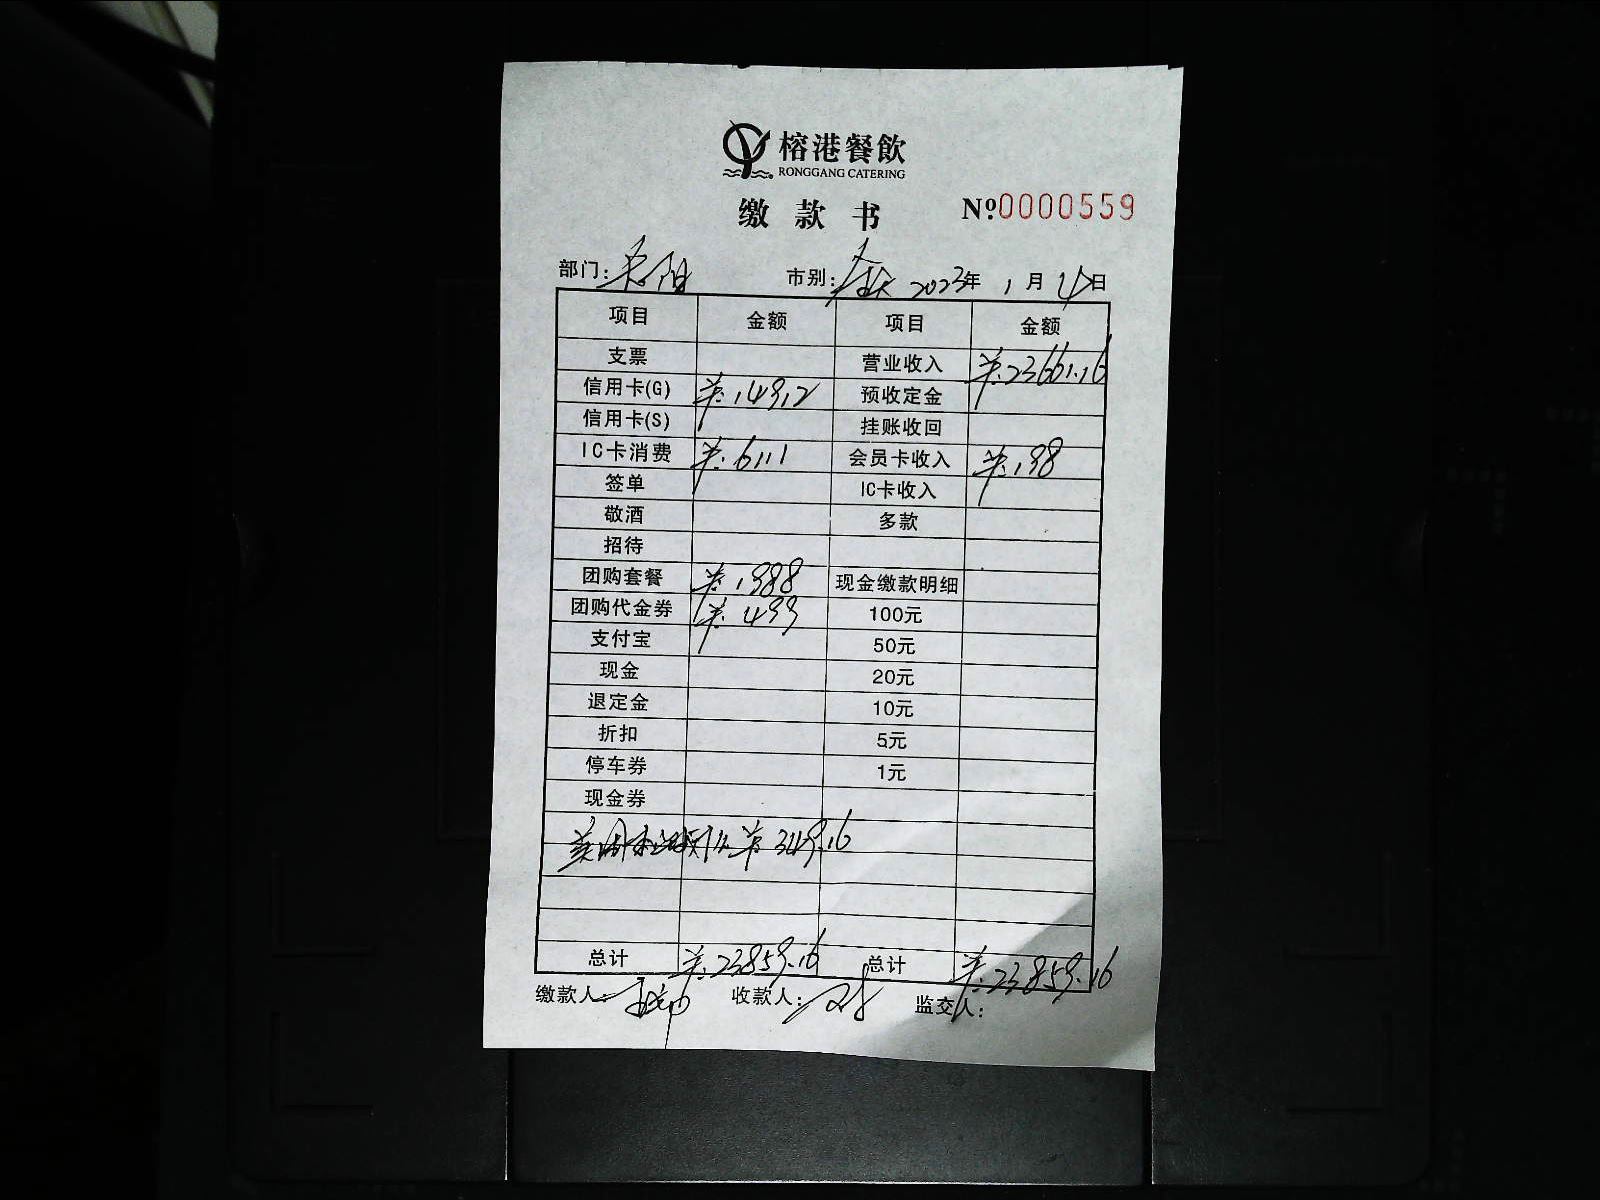 榕港餐飲
RONGGANG CATERING
缴款书 Nº0000559
部门: 市别: 2023年 1月 4日
项目 金额 项目 金额
支票 营业收入 ¥:23661.16
信用卡(G) ¥:14912 预收定金
信用卡(S) 挂账收回
IC卡消费 ¥:6111 会员卡收入 ¥:198
签单 IC卡收入
敬酒 多款
招待
团购套餐 ¥:1988 现金缴款明细
团购代金券 ¥:499 100元
支付宝 50元
现金 20元
退定金 10元
折扣 5元
停车券 1元
现金券
美团 ¥349.16
总计 ¥:23859.16 总计 ¥:23859.16
缴款人: 收款人: 监交人: